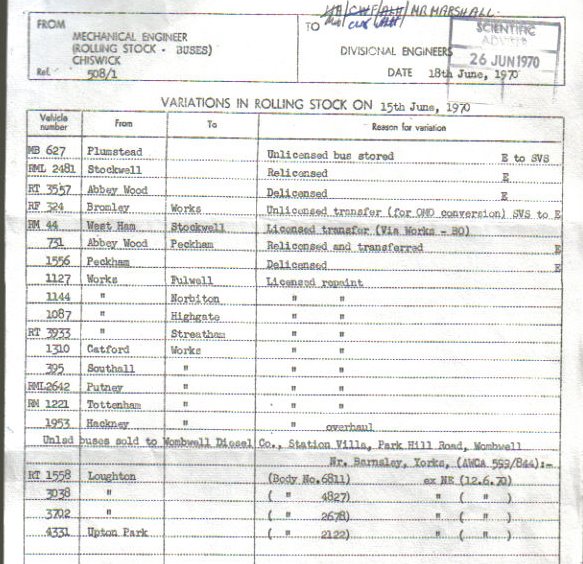 MR MARSHALL
FROM
MECHANICAL ENGINEER
(ROLLING STOCK - BUSES)
CHISWICK
Ref. 508/1
TO
DIVISIONAL ENGINEERS
DATE 18th June, 1970
SCIENTIFIC
ADVISER
26 JUN 1970
VARIATIONS IN ROLLING STOCK ON 15th June, 1970
Vehicle number From To Reason for variation
MB 627 Plumstead Unlicensed bus stored E to SVS
RML 2481 Stockwell Relicensed E
RT 3557 Abbey Wood Delicensed E
RF 324 Bromley Works Unlicensed transfer (for OMO conversion) SVS to E
RM 44 West Ham Stockwell Licensed transfer (Via Works - BO)
731 Abbey Wood Peckham Relicensed and transferred E
1556 Peckham Delicensed E
1127 Works Fulwell Licensed repaint
1144 " Norbiton " "
1087 " Highgate " "
RT 3933 " Streatham " "
1310 Catford Works " "
395 Southall " " "
RML2642 Putney " " "
RM 1221 Tottenham " " "
1953 Hackney " " overhaul
Unlsd buses sold to Wombwell Diesel Co., Station Villa, Park Hill Road, Wombwell
Nr. Barnsley, Yorks, (AWCA 599/844):-
RT 1558 Loughton (Body No.6811) ex NE (12.6.70)
3038 " ( " 4827) " ( " )
3702 " ( " 2678) " ( " )
4331 Upton Park ( " 2122) " ( " )